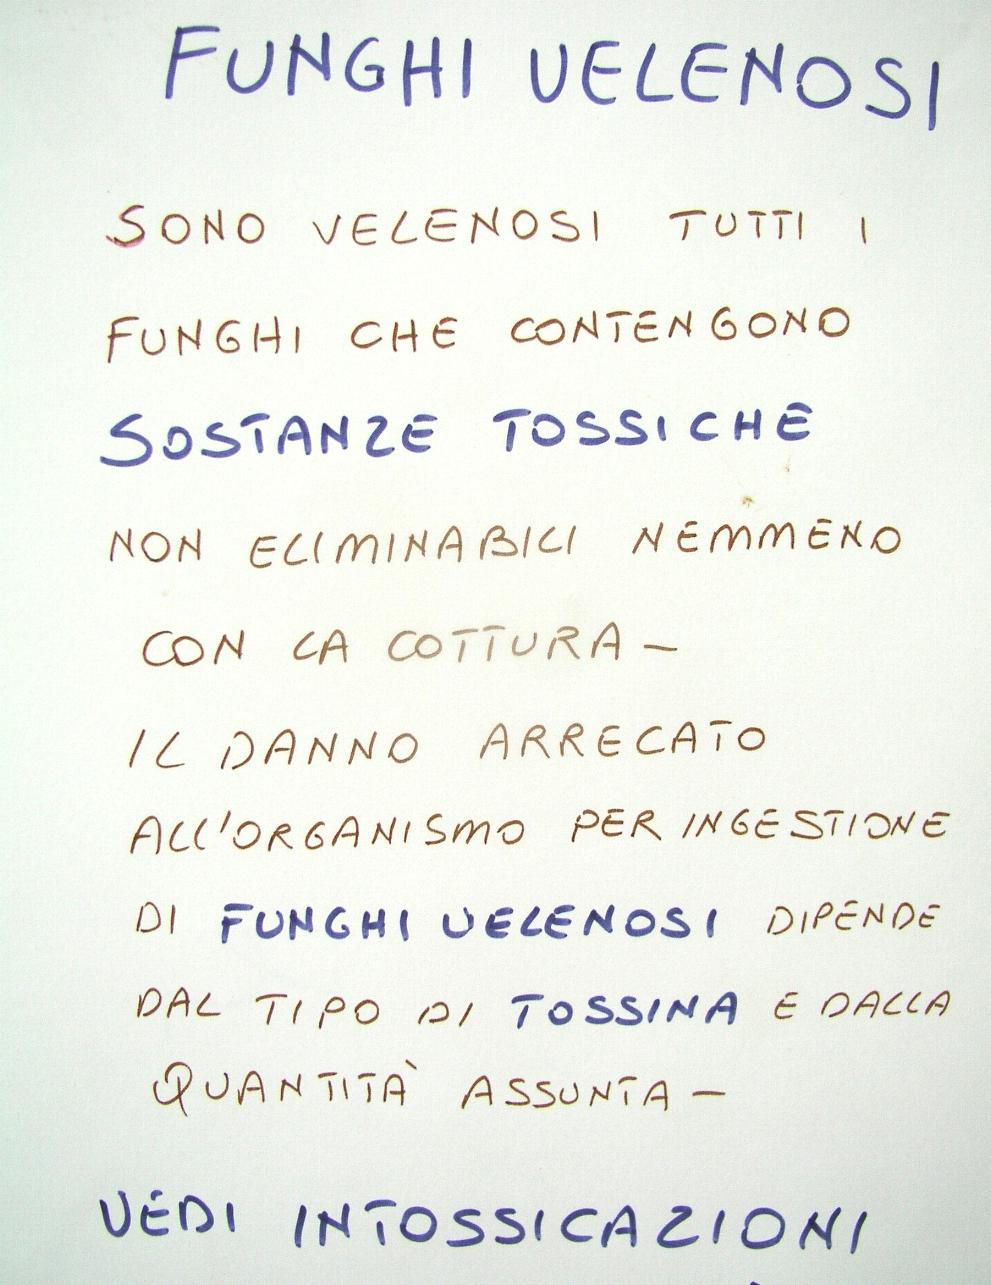 FUNGHI VELENOSI
SONO VELENOSI TUTTI I
FUNGHI CHE CONTENGONO
SOSTANZE TOSSICHE
NON ELIMINABILI NEMMENO
CON LA COTTURA –
IL DANNO ARRECATO
ALL'ORGANISMO PER INGESTIONE
DI FUNGHI VELENOSI DIPENDE
DAL TIPO DI TOSSINA E DALLA
QUANTITÀ ASSUNTA –
VEDI INTOSSICAZIONI